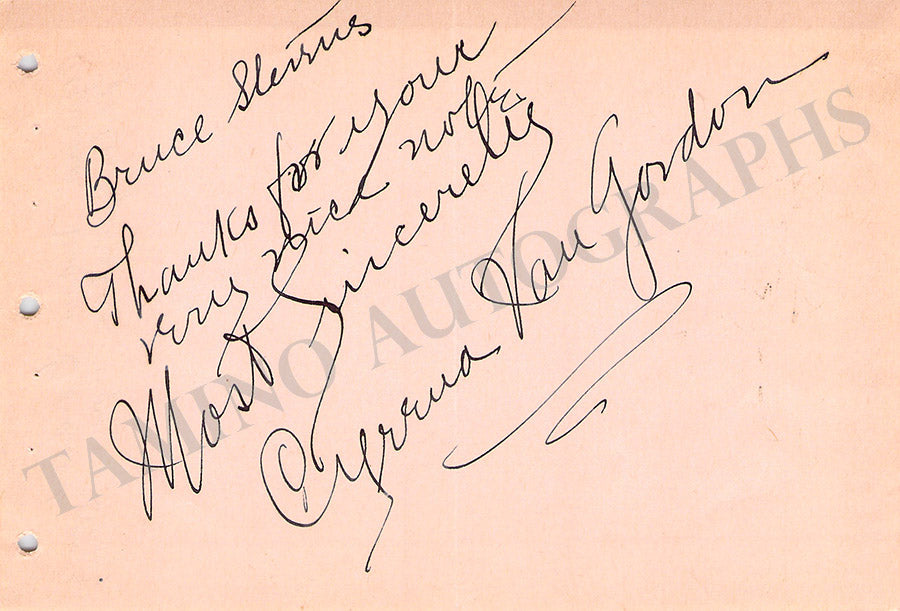 Bruce Stevens
Thanks for your
very nice note
Most Sincerely
Cyrena Van Gordon
TAMINO AUTOGRAPHS